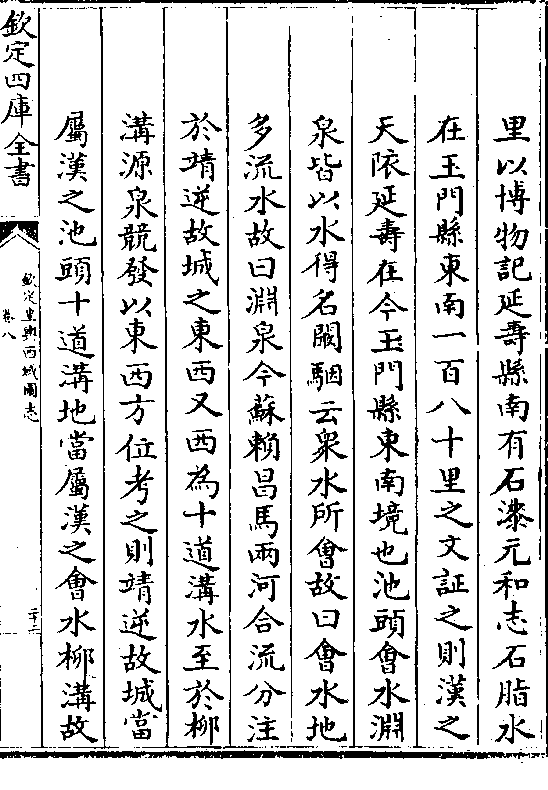 里以博物記延壽縣南有石漆元和志石脂水
在玉門縣東南一百八十里之文証之則漢之
天依延壽在今玉門縣東南境也池頭會水淵
泉皆以水得名闞駰云衆水所會故曰會水地
多流水故曰淵泉今蘇賴昌馬兩河合流分注
於靖逆故城之東西又西為十道溝水至於柳
溝源泉競發以東西方位考之則靖逆故城當
屬漢之池頭十道溝地當屬漢之會水柳溝故
欽定四庫全書
欽定皇輿西域圖志
卷八
二十二